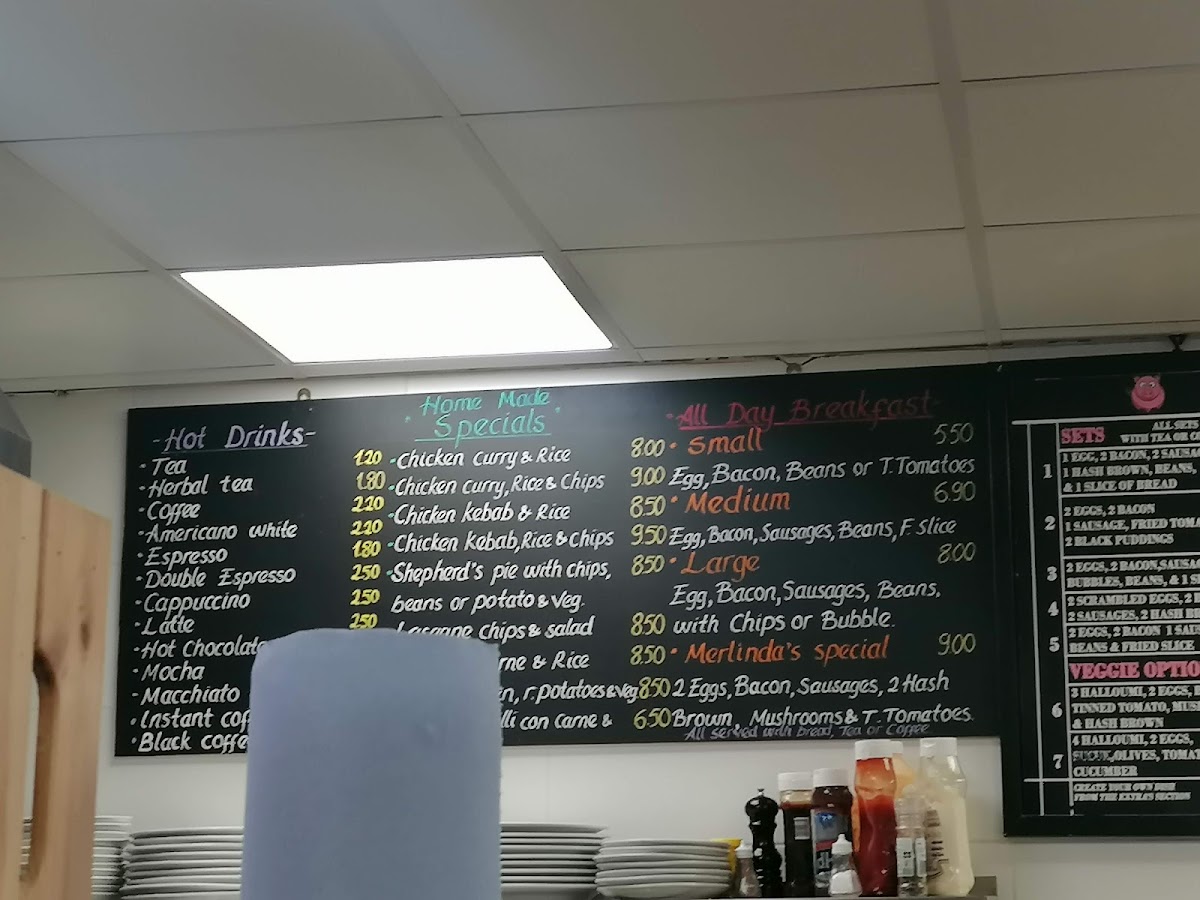 -Hot Drinks-
· Tea 1.20
· Herbal tea 1.80
· Coffee 2.20
· Americano white 2.20
· Espresso 1.80
· Double Espresso 2.50
· Cappuccino 2.50
· Latte 2.50
· Hot Chocolate
· Mocha
- Macchiato
· Instant
· Black coffee
Home Made
· Specials ·
· Chicken curry & Rice 8.00
· Chicken curry, Rice & Chips 9.00
· Chicken kebab & Rice 8.50
· Chicken kebab, Rice & Chips 9.50
· Shepherd's pie with chips, 8.50
beans or potato & Veg.
chips & salad 8.50
& Rice 8.50
r. potatoes & veg 8.50
con carne & 6.50
- All Day Breakfast -
· Small 5.50
Egg, Bacon, Beans or T. Tomatoes
· Medium 6.90
Egg, Bacon, Sausages, Beans, F. Slice
· Large 8.00
Egg, Bacon, Sausages, Beans,
with Chips or Bubble.
· Merlinda's special 9.00
2 Eggs, Bacon, Sausages, 2 Hash
Brown, Mushrooms & T. Tomatoes.
All served with bread, Tea or Coffee
SETS
ALL SETS
WITH TEA OR
1 1 EGG, 2 BACON, 2
1 HASH BROWN, BEANS,
& 1 SLICE OF BREAD
2 2 EGGS, 2 BACON
1 SAUSAGE, FRIED
2 BLACK PUDDINGS
3 2 EGGS, 2 BACON,
BUBBLES, BEANS, & 1
4 2 SCRAMBLED EGGS, 2
2 SAUSAGES, 2 HASH
5 2 EGGS, 2 BACON 1
BEANS & FRIED SLICE
VEGGIE
6 3 HALLOUMI, 2 EGGS,
TINNED TOMATO,
& HASH BROWN
7 4 HALLOUMI, 2 EGGS,
OLIVES,
CUCUMBER
CREATE YOUR OWN DISH
FROM THE EXTRA'S SECTION